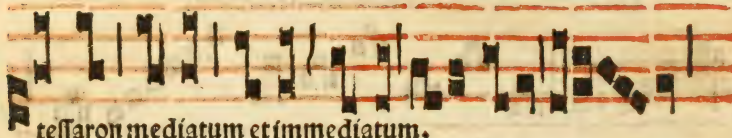 teſſaron mediatum et immediatum.